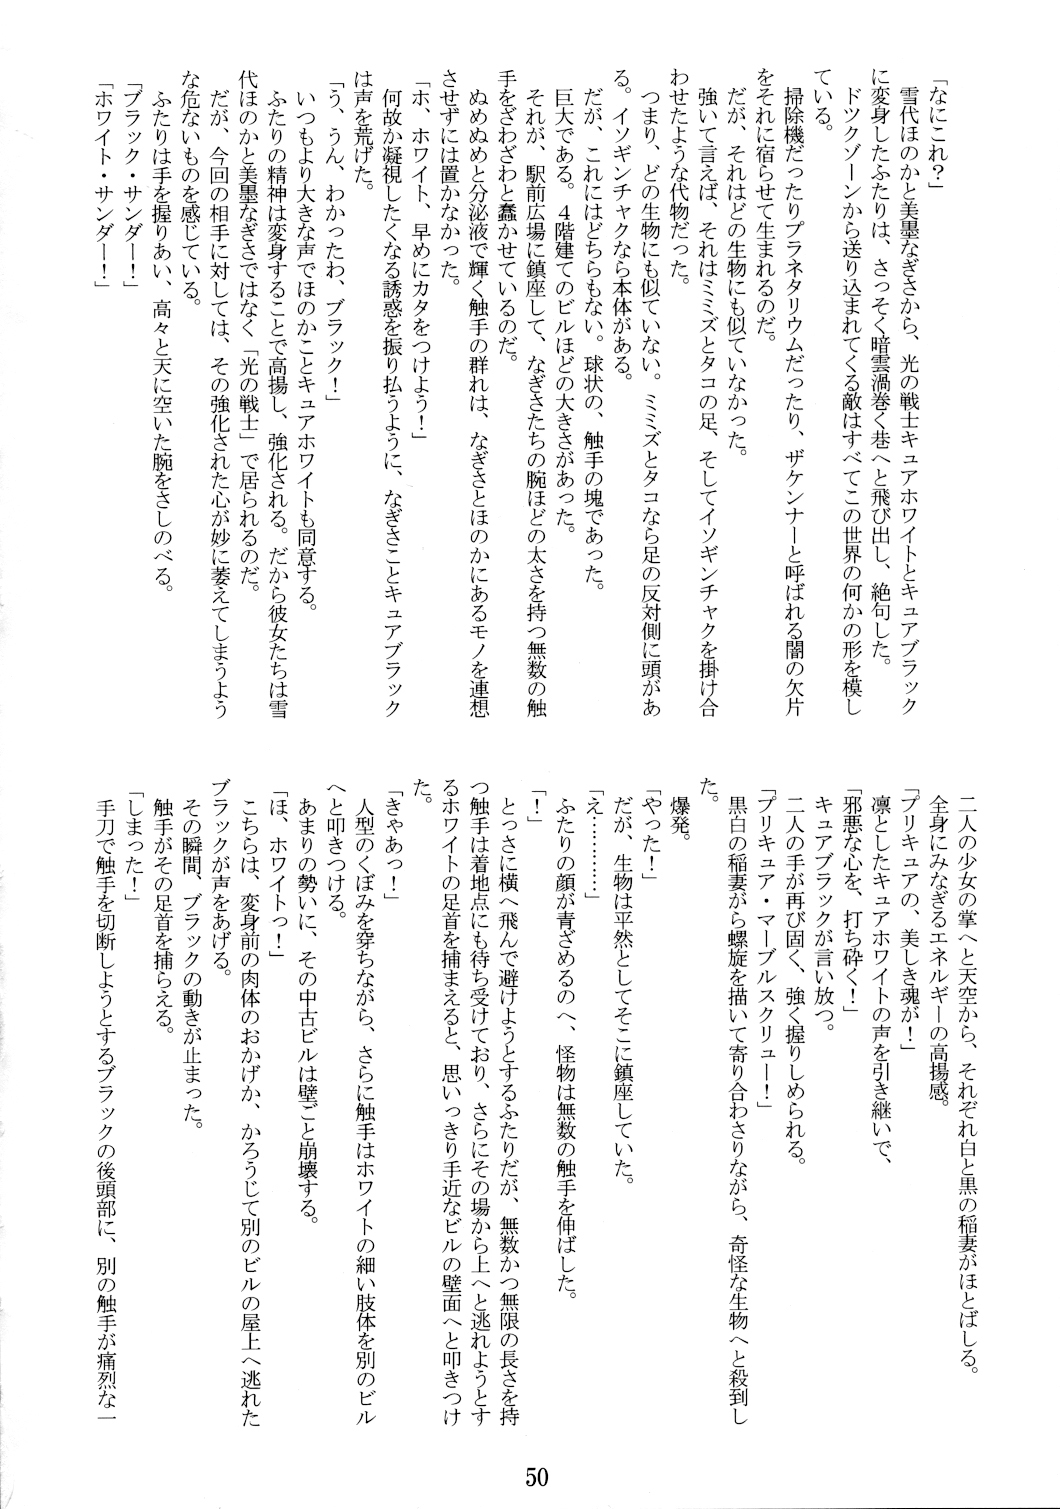 「なにこれ？」
雪代ほのかと美墨なぎさから、光の戦士キュアホワイトとキュアブラック
に変身したふたりは、さっそく暗雲渦巻く巷へと飛び出し、絶句した。
ドツクゾーンから送り込まれてくる敵はすべてこの世界の何かの形を模し
ている。
掃除機だったりプラネタリウムだったり、ザケンナーと呼ばれる闇の欠片
をそれに宿らせて生まれるのだ。
だが、それはどの生物にも似ていなかった。
強いて言えば、それはミミズとタコの足、そしてイソギンチャクを掛け合
わせたような代物だった。
つまり、どの生物にも似ていない。ミミズとタコなら足の反対側に頭があ
る。イソギンチャクなら本体がある。
だが、これにはどちらもない。球状の、触手の塊であった。
巨大である。４階建てのビルほどの大きさがあった。
それが、駅前広場に鎮座して、なぎさたちの腕ほどの太さを持つ無数の触
手をざわざわと蠢かせているのだ。
ぬめぬめと分泌液で輝く触手の群れは、なぎさとほのかにあるモノを連想
させずには置かなかった。
「ホ、ホワイト、早めにカタをつけよう！」
何故か凝視したくなる誘惑を振り払うように、なぎさことキュアブラック
は声を荒げた。
「う、うん、わかったわ、ブラック！」
いつもより大きな声でほのかことキュアホワイトも同意する。
ふたりの精神は変身することで高揚し、強化される。だから彼女たちは雪
代ほのかと美墨なぎさではなく「光の戦士」で居られるのだ。
だが、今回の相手に対しては、その強化された心が妙に萎えてしまうよう
な危ないものを感じている。
ふたりは手を握りあい、高々と天に空いた腕をさしのべる。
「ブラック・サンダー！」
「ホワイト・サンダー！」
二人の少女の掌へと天空から、それぞれ白と黒の稲妻がほとばしる。
全身にみなぎるエネルギーの高揚感。
「プリキュアの、美しき魂が！」
凛としたキュアホワイトの声を引き継いで、
「邪悪な心を、打ち砕く！」
キュアブラックが言い放つ。
二人の手が再び固く、強く握りしめられる。
「プリキュア・マーブルスクリュー！」
黒白の稲妻がら螺旋を描いて寄り合わさりながら、奇怪な生物へと殺到し
た。
爆発。
「やった！」
だが、生物は平然としてそこに鎮座していた。
「え…………」
ふたりの顔が青ざめるのへ、怪物は無数の触手を伸ばした。
「！」
とっさに横へ飛んで避けようとするふたりだが、無数かつ無限の長さを持
つ触手は着地点にも待ち受けており、さらにその場から上へと逃れようとす
るホワイトの足首を捕まえると、思いっきり手近なビルの壁面へと叩きつけ
た。
「きゃあっ！」
人型のくぼみを穿ちながら、さらに触手はホワイトの細い肢体を別のビル
へと叩きつける。
あまりの勢いに、その中古ビルは壁ごと崩壊する。
「ほ、ホワイトっ！」
こちらは、変身前の肉体のおかげか、かろうじて別のビルの屋上へ逃れた
ブラックが声をあげる。
その瞬間、ブラックの動きが止まった。
触手がその足首を捕らえる。
「しまった！」
手刀で触手を切断しようとするブラックの後頭部に、別の触手が痛烈な一
50